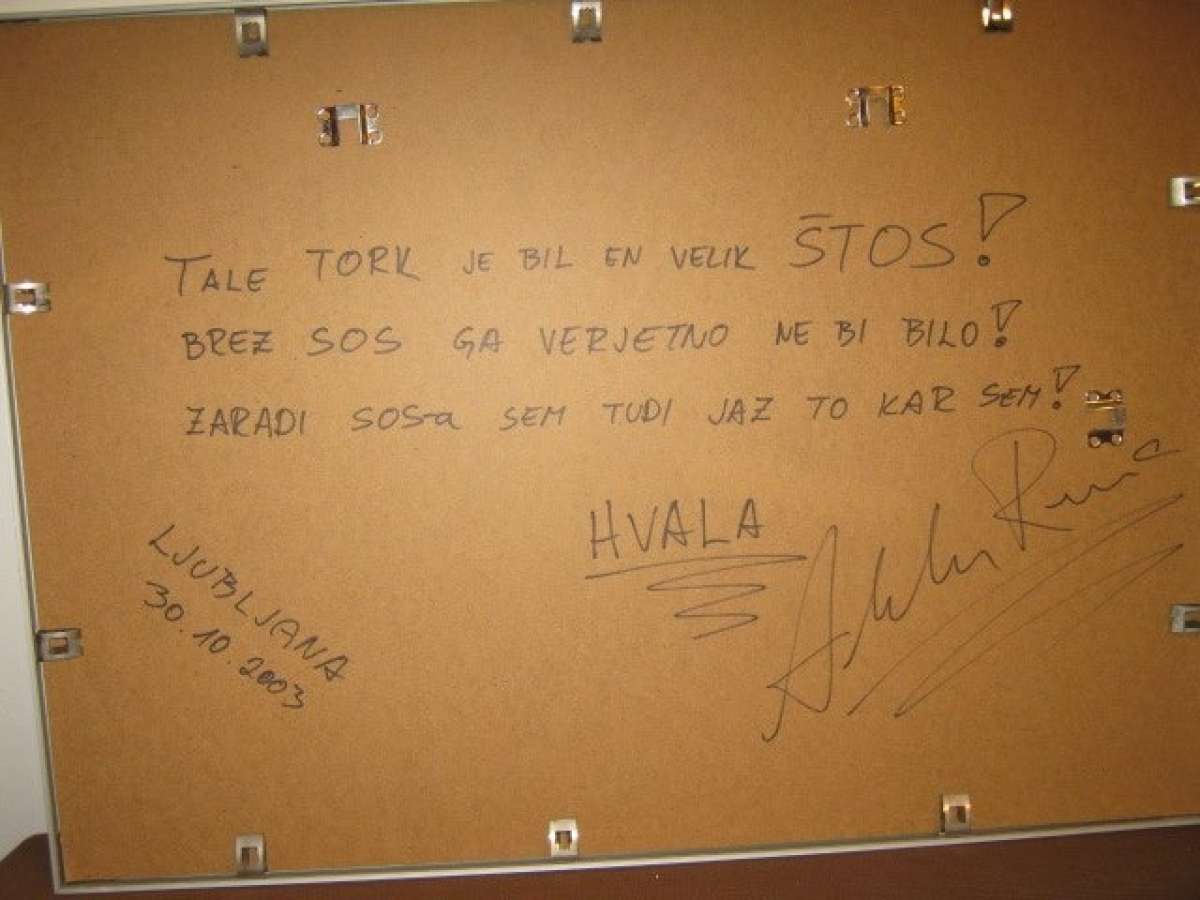 TALE TORK JE BIL EN VELIK ŠTOS!
BREZ SOS GA VERJETNO NE BI BILO!
ZARADI SOSa SEM TUDI JAZ TO KAR SEM!
HVALA
LJUBLJANA
30.10.2003